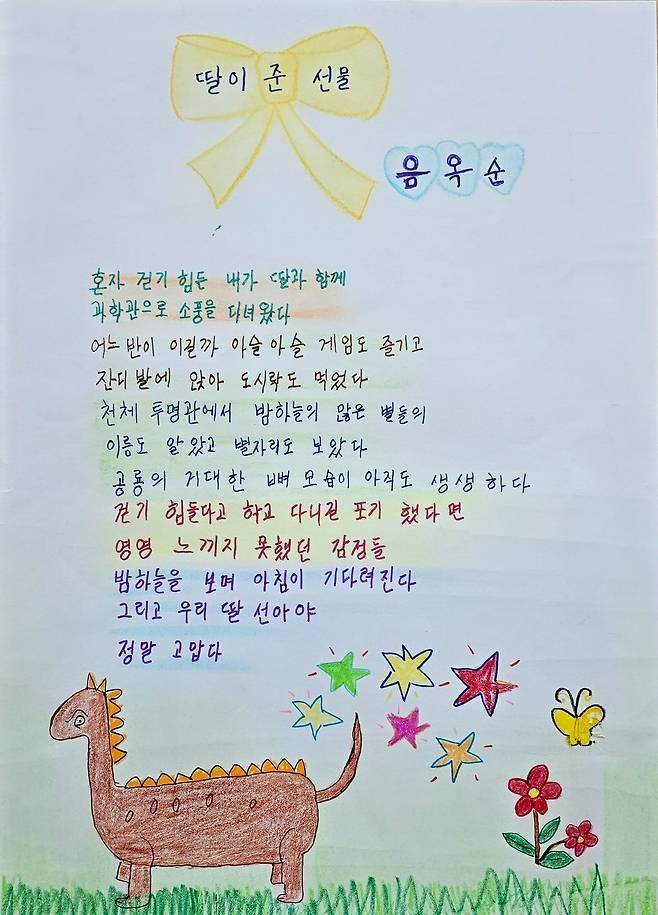 딸이 준 선물
음옥순
혼자 걷기 힘든 내가 딸과 함께
과학관으로 소풍을 다녀왔다
어느 반이 이길까 아슬아슬 게임도 즐기고
잔디밭에 앉아 도시락도 먹었다
천체 투명관에서 밤하늘의 많은 별들의
이름도 알았고 별자리도 보았다
공룡의 거대한 뼈 모습이 아직도 생생하다
걷기 힘들다고 하고 다니길 포기 했다면
영영 느끼지 못했던 감정들
밤하늘을 보며 아침이 기다려진다
그리고 우리 딸 선아야
정말 고맙다